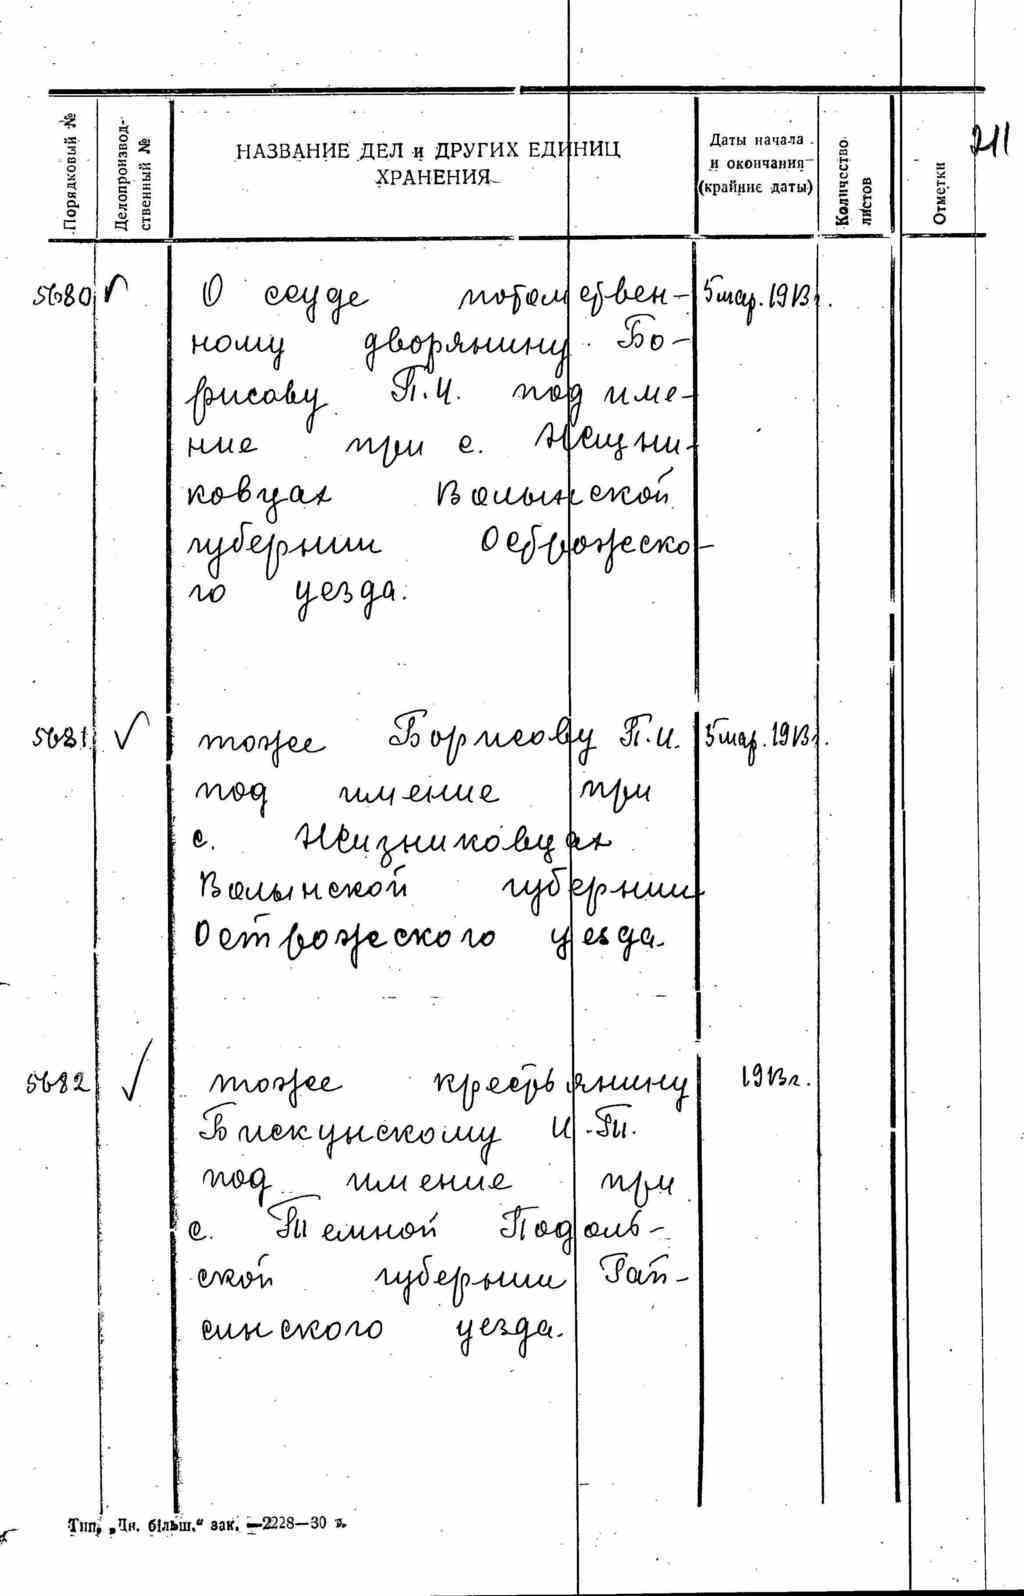 211
Порядковый №
Делопроизвод-
ственный №
НАЗВАНИЕ ДЕЛ и ДРУГИХ ЕДИНИЦ
ХРАНЕНИЯ
Даты начала
и окончания
(крайние даты)
Количество
листов
Отметки
5680 √ О ссуде потомствен- 5 мар. 1913 г.
ному дворянину Бо-
рисову П.И. под име-
ние при с.
ковцах Волынской
губернии Острожско-
го уезда.
5681 √ тоже Борисову П.И. 5 мар. 1913 г.
под имение при
с. Жизниковцах
Волынской губернии
Острожеского уезда.
5682 √ тоже крестьянину 1913 г.
Бискунскому И.Т.
под имение при
с. Темной Подоль-
ской губернии Гай-
синского уезда.
Тип. „Чн. більш.“ зак. —2228—30 т.